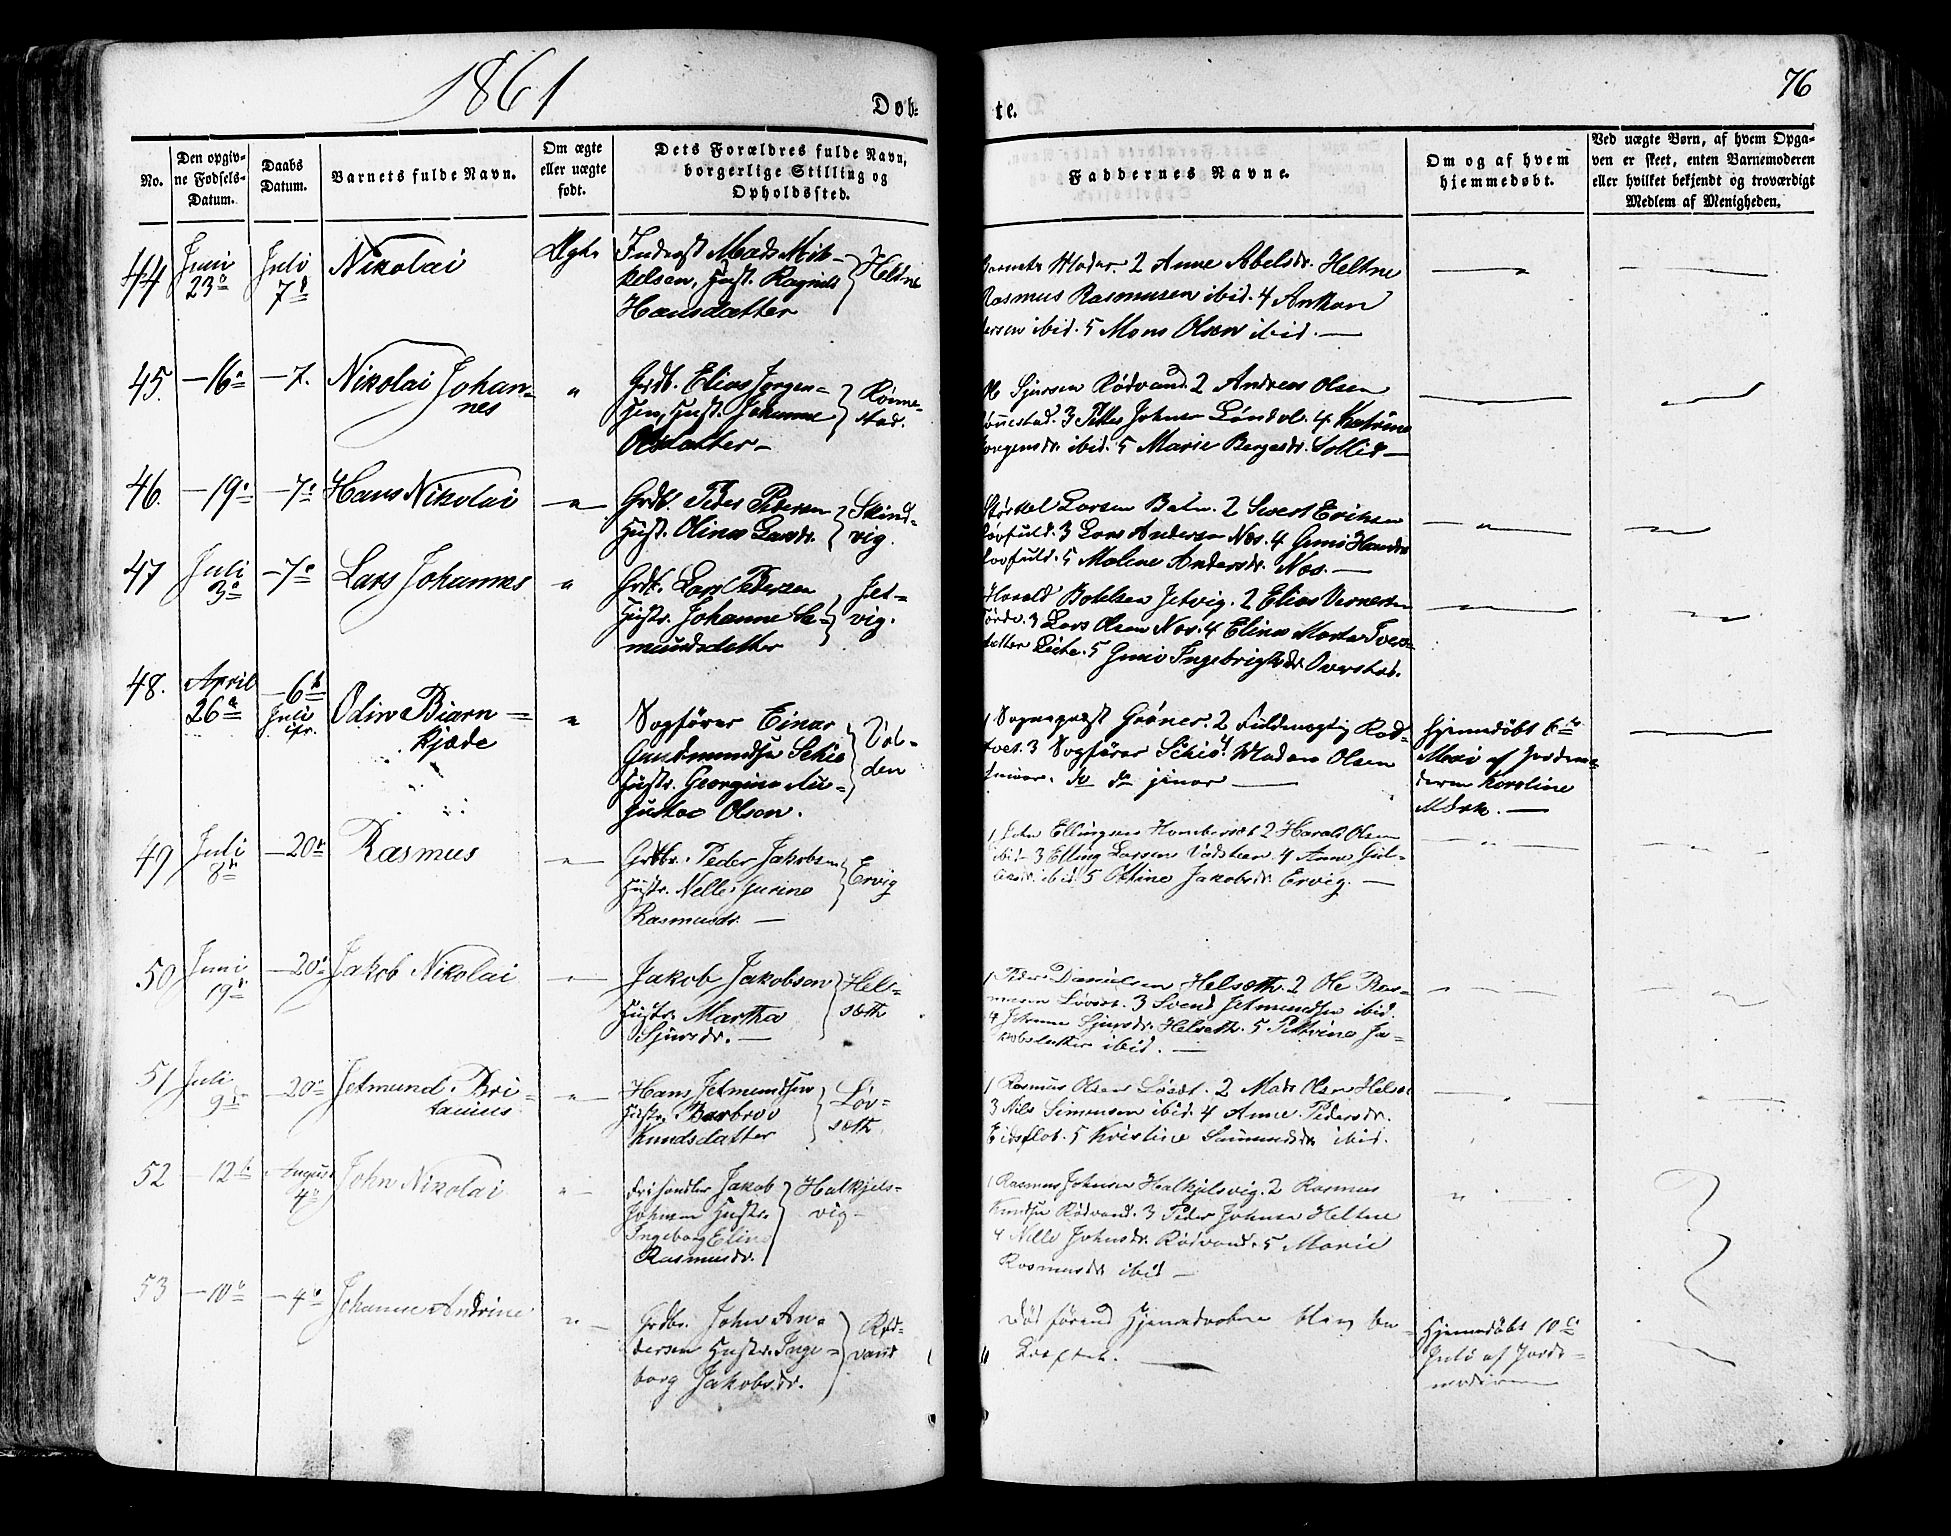 1861
Døb-
te.
76
No.
Den opgiv-
ne Fødsels-
Datum.
Daabs
Datum.
Barnets fulde Navn.
Om ægte
eller uægte
født.
Dets Forældres fulde Navn,
borgerlige Stilling og
Opholdssted.
Faddernes Navne.
Om og af hvem
hjemmedøbt.
Ved uægte Børn, af hvem Opga-
ven er skeet, enten Barnemoderen
eller hvilket bekjendt og troværdigt
Medlem af Menigheden.
44
Juni
23
Juli
7
Nikolai
Ægte
Mads Mik-
kelsen, Hust. Ragnild
Hansdatter
Heltne
Moder. 2 Anne Abelsdr. Heltne
Rasmus Rasmusen ibid. 4 Anthon
ibid. 5 Mons Olsen ibid. —
45.
—16
—7.
Nikolai Johan-
nes
"
Grdb. Elias Jørgen-
sen, Hust. Johanne
Olsdatter —
Rønne-
stad.
Sjursen Rødvand. 2 Andreas Olsen
Rønnestad. 3 Johnsen 4 Katrine
Jørgensdr. ibid. 5 Marie Bergesdr. Sollid —
46.
—19
—7
Hans Nikolai
— " —
Grdb. Peder Pedersen
Hust. Oline Larsdr.
Skind-
vig.
Larsen 2 Sivert Eriksen
3 Lars Andersen Nøs. 4 Guni
5 Malene Andersdr. Nøs. —
47
Juli
3
—7
Lars Johannes
"
Grdb. Lars Pedersen
Hustr. Johanne Sa-
mundsdatter
Jet-
vig.
Harald Botelsen Jetvig. 2 Elias
3 Lars Olsen Nøs. 4 Marta
5 Guni Ingebrigtsdr.
48.
April
26
—6
Juli
Odin Biarn-
kjæde
"
Sagfører Einar
Gudmundsen Schie
Hustr. Georgine Au-
gusta Olsen.
Vol-
den
1 Sogneprest Grøner. 2 Fuldmægtig Rød-
tvet. 3 Sagfører Schie. 4 Madam Olsen
junior —
Hjemmedøbt 6te
Mai af Jordmo-
deren Karoline
Mørk. —
49
Juli
8
—20
Rasmus
— " —
Grdbr. Peder Jakobsen
Hustr. Nelle Gurine
Rasmusdr. —
Ervig
1 Ellingsen 2 Harald Olsen
ibid. 3 Elling Larsen Vadsteen. 4 Anne
ibid. 5 Oline Jakobsdr. Ervig. —
50
Juni
19
—20
Jakob Nikolai
Jakob Jakobsen
Hustr. Martha
Sjursdr. —
Hels-
sæth
1 Peder Danielsen Helsæth. 2 Ole Ras-
musen 3 Svend Jetmundsen ibid.
4 Sjursdr. Helsæth. 5 Petrine Ja-
kobsdatter ibid. —
51
Juli
9
—20
Jetmund Bri-
tanius
— " —
Hans Jetmundsen
Hustr. Barbro
Knudsdatter
Løv-
sæth
1 Rasmus Olsen 2 Mads Olsen
3 Nils Simensen ibid. 4 Anne Pedersdr.
Eidsflot. 5 Kristine ibid.
52
—12
August
4
John Nikolai
" —
Jakob
Johnsen Hustr.
Ingeborg Eline
Rasmusdr.
Halkjels-
vig —
1 Rasmus Johnsen Halkjelsvig. 2 Rasmus
Knudsen Rødvand. 3 Peder Johnsen Heltne
4 Nelle Johnsdr. Rødvand. 5 Marie
Rasmusdr. ibid —
53
—10
—4
Johanne Andrine
" —
Grdbr. John An-
dersen Hustr. Inge-
borg Jakobsdr.
Rød-
vand
Død førend Hjemmedaaben blev be-
kræftet. —
Hjemmedøbt 10de
Juli af Jord-
moderen